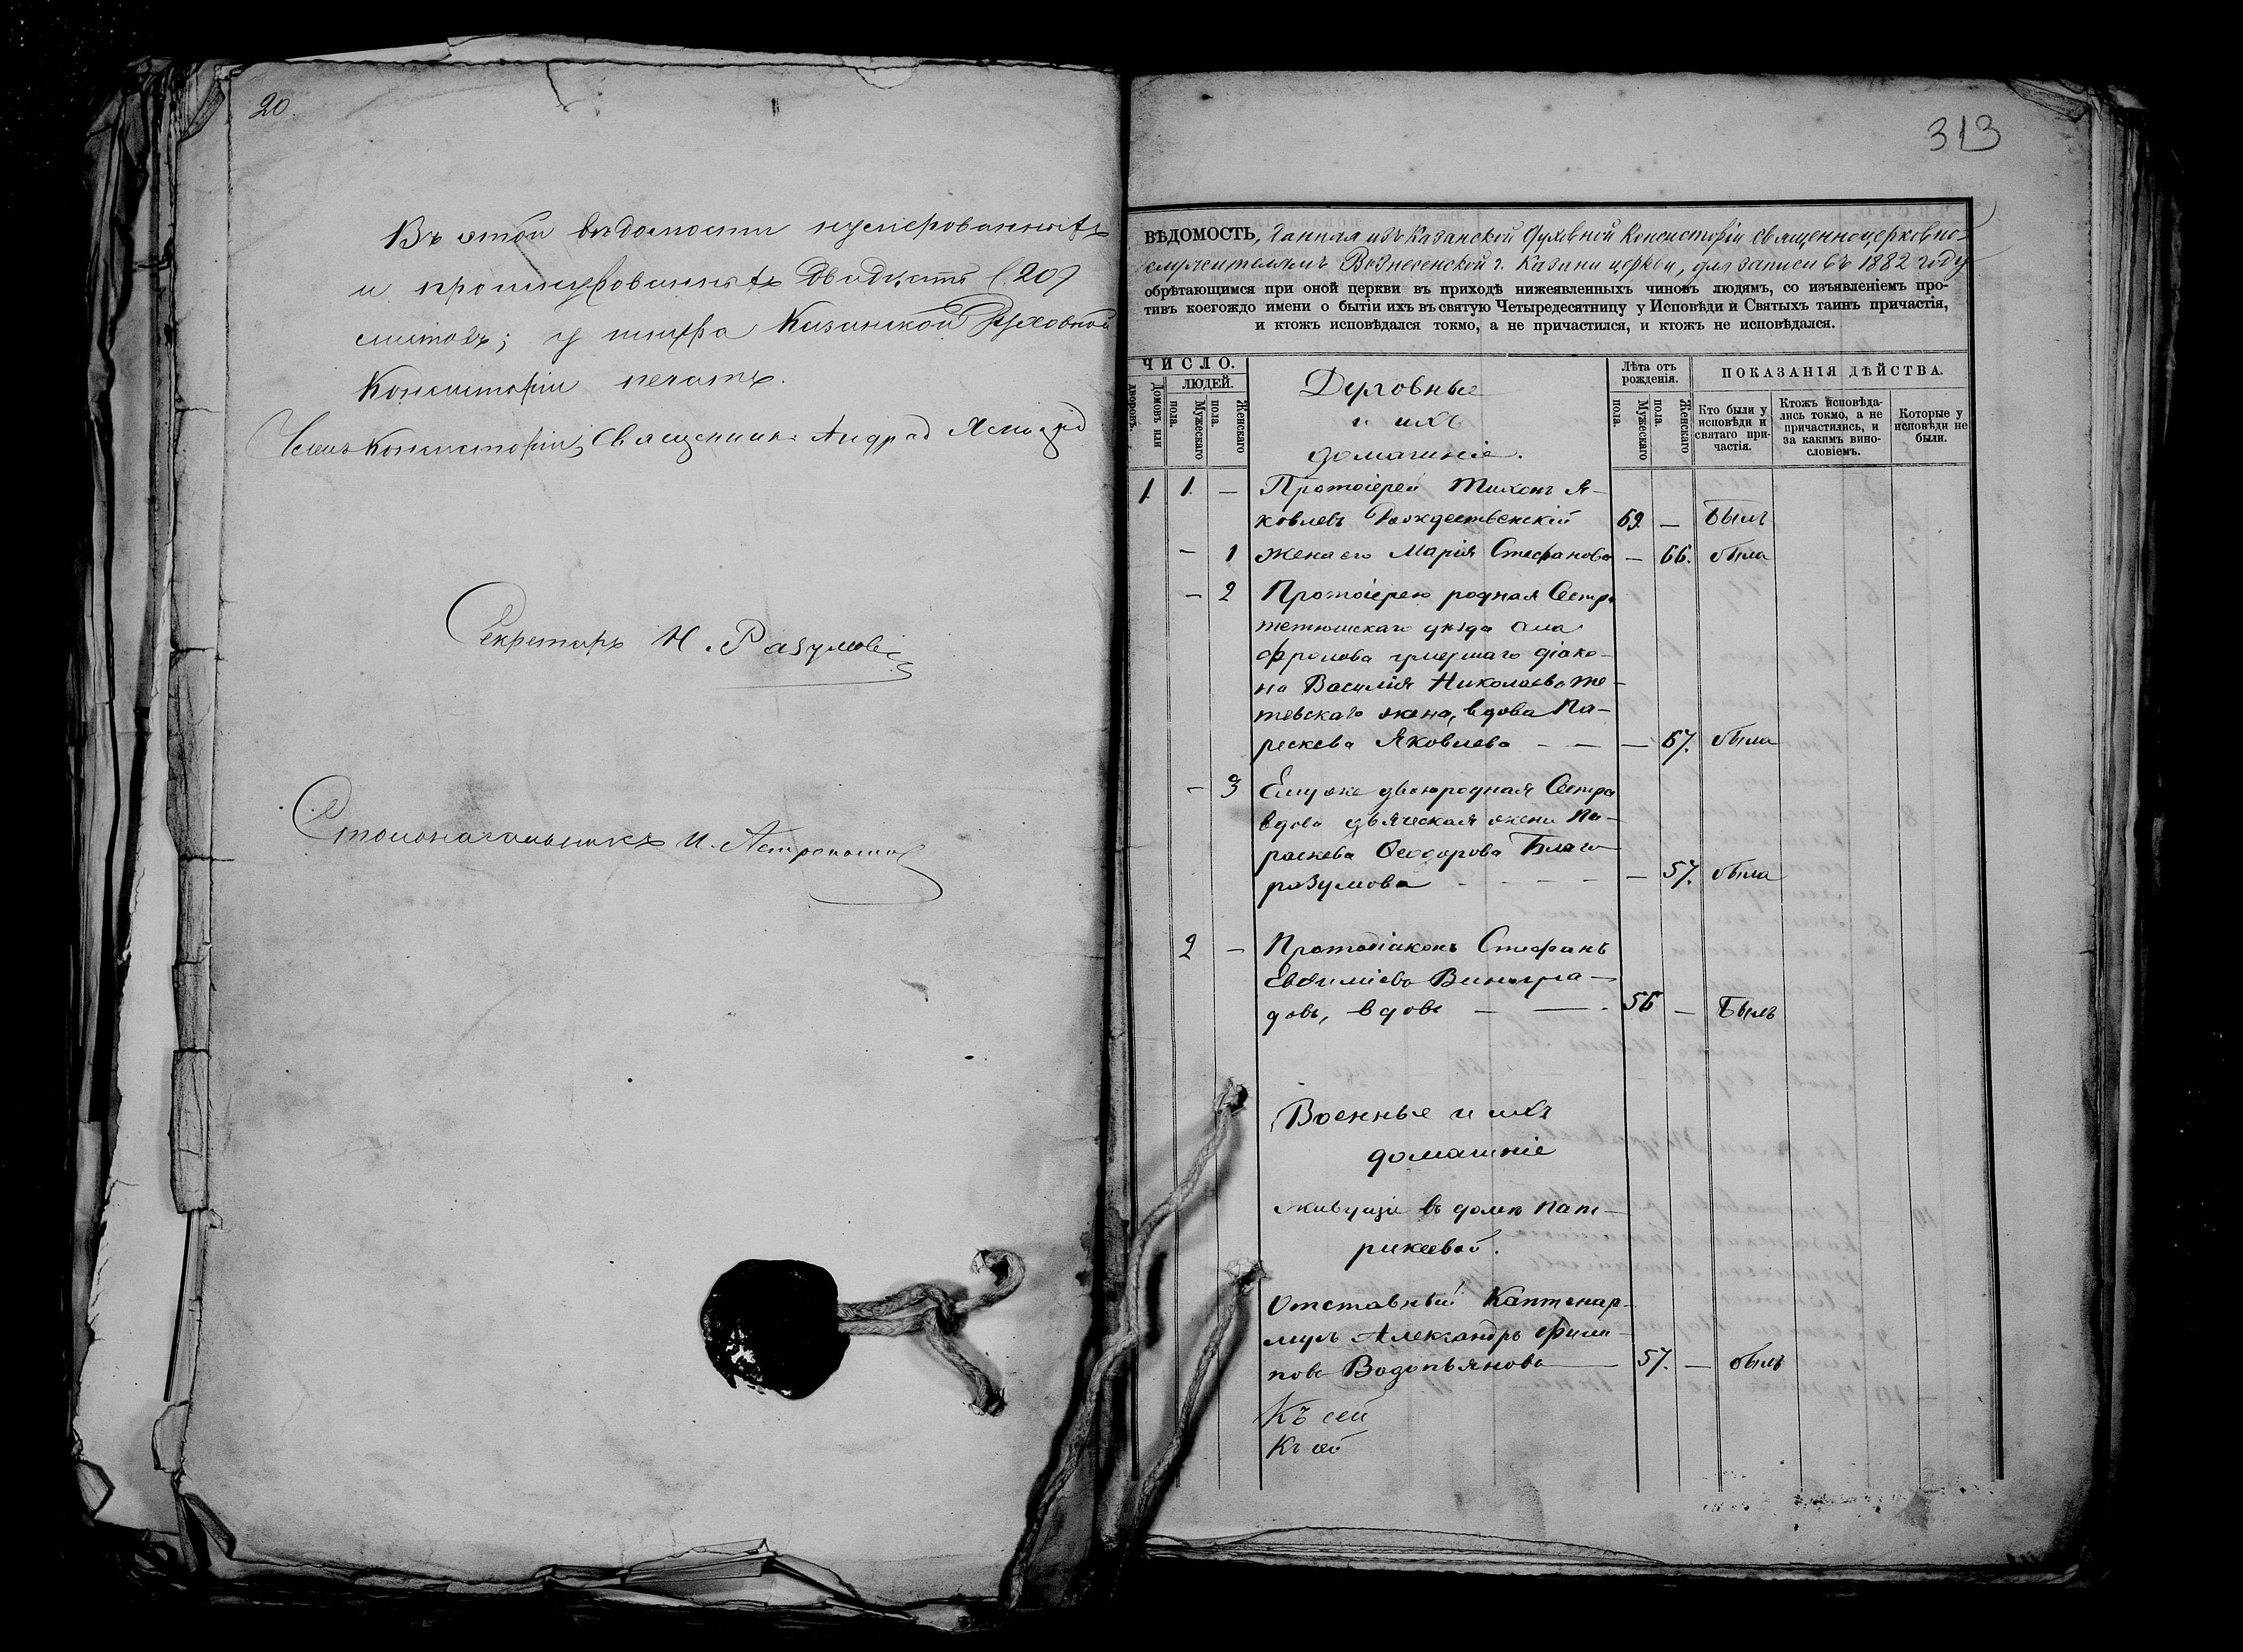 20.
Въ этой вѣдомости нумерованныхъ
и прошнурованныхъ двадцать (20)
листовъ; у шнура Казанской Духовной
Консисторіи печать.
Членъ Консисторіи, Священникъ Андрей
Секретарь Н. Разумов
Столоначальникъ И.
313
ВѢДОМОСТЬ, данная изъ Казанской Духовной Консисторіи священноцерковно-
служителямъ Вознесенской г. Казани церкви, для записи въ 1882 году
обрѣтающимся при оной церкви въ приходѣ нижеявленныхъ чиновъ людямъ, со изъявленіемъ про-
тивъ коегождо имени о бытіи ихъ въ святую Четыредесятницу у Исповѣди и Святыхъ таинъ причастія,
и ктожъ исповѣдался токмо, а не причастился, и ктожъ не исповѣдался.
ЧИСЛО.
Домовъ или дворовъ.
ЛЮДЕЙ.
Мужескаго пола.
Женскаго пола.
Духовные
и ихъ
домашніе.
Лѣта отъ рожденія.
Мужескаго пола.
Женскаго пола.
ПОКАЗАНІЯ ДѢЙСТВА.
Кто были у исповѣди и святаго при- частія.
Ктожъ исповѣда- лись токмо, а не причастились, и за какимъ вино- словіемъ.
Которые у исповѣди не были.
1. 1. — Протоіерей Тихонъ Я-
ковлевъ Рождественскій 69. — Былъ
— 1 Жена его Марія Стефанова — 66. была
— 2 Протоіерею родная Сестра
тетюшскаго уѣзда села
Фролова умершаго діако-
на Василія Николаева Те-
тевскаго жена, вдова Па-
раскева Яковлева — — — 67. была
— 3 Ему же двоюродная Сестра
вдова дьяческая жена Па-
раскева Ѳеодорова Благо-
разумова - - - - — 57. была
2 — Протодіаконъ Стефанъ
Евѳиміевъ Виногра-
довъ, вдовъ — — 56 — Былъ
Военные и ихъ
домашніе
Живущіе въ домѣ Пат-
рикеевой.
Отставный Каптенар-
мусъ Александръ Фили-
повъ Водопьяновъ — 57. — былъ
Къ сей
Къ сей